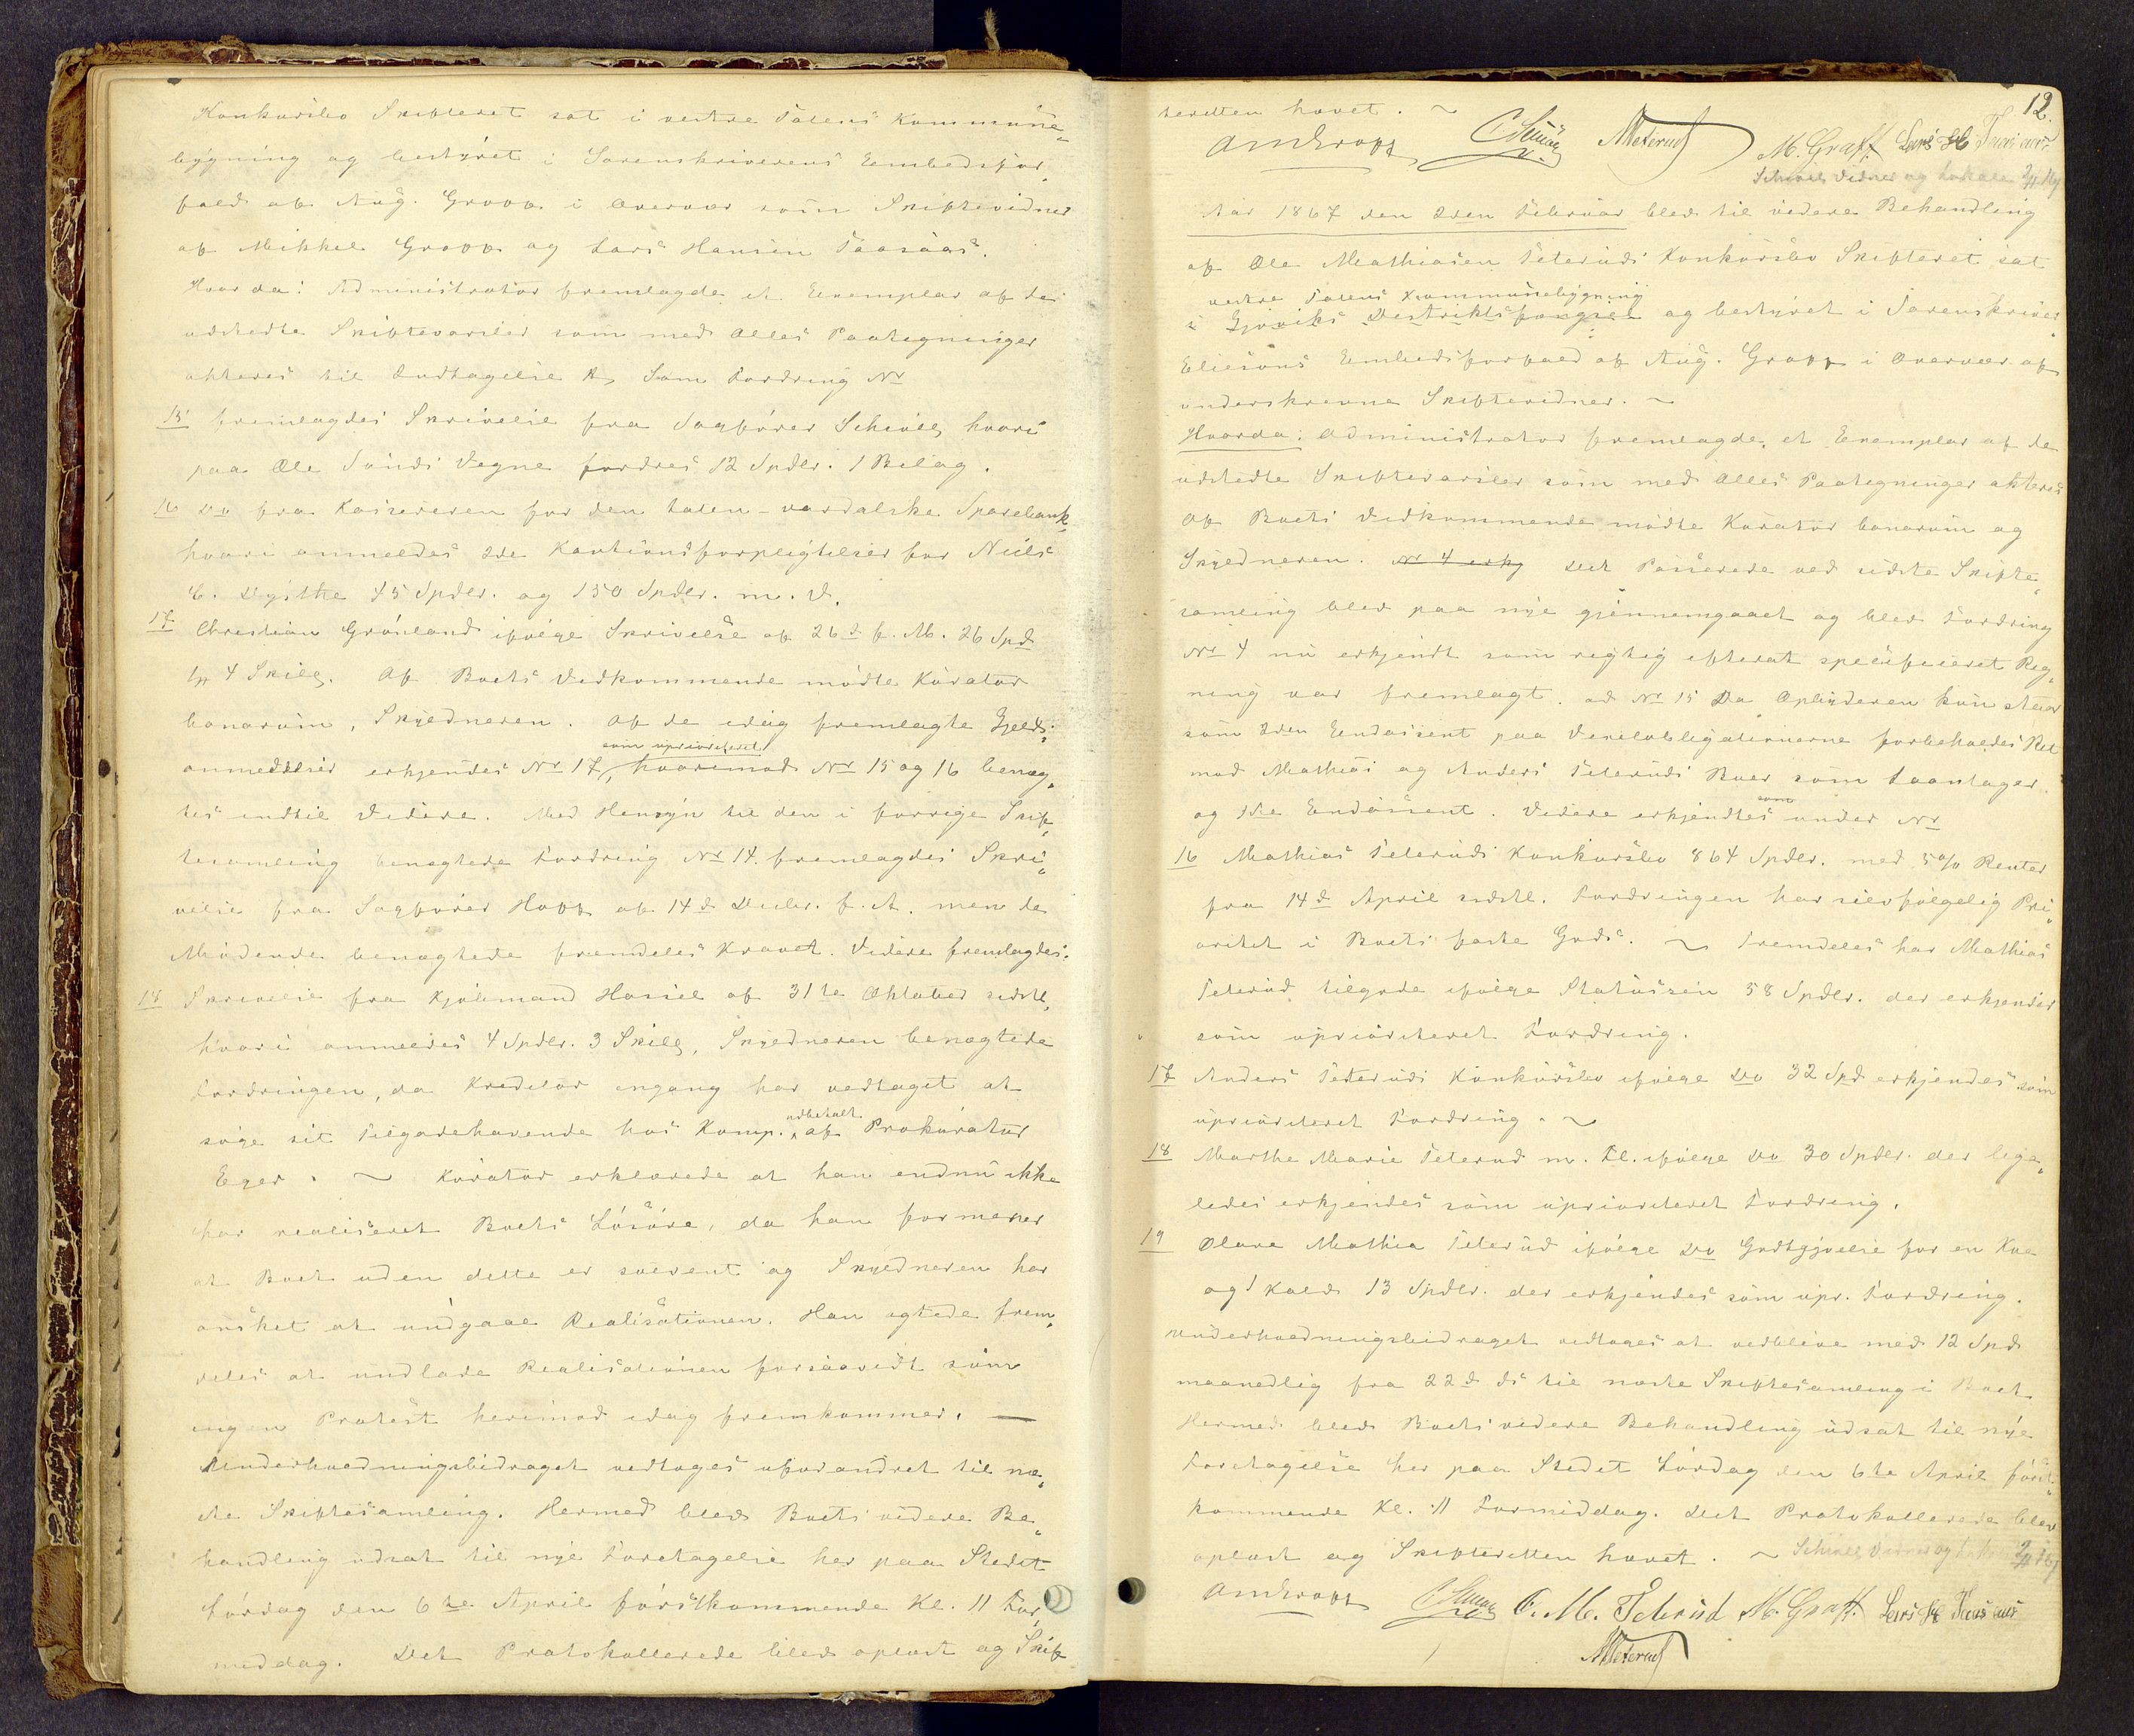 Konkursbo Skifteret sat i vestre Totens Kommune„
bygning og bestyret i Sorenskriverens Embedsfor„
fald af Aug. Gropp i Overvær som Skiftevidner
af Mikkel Gropp og Lars Hansen Taasaas.
Hvorda: Administrator fremlagde et Exemplar af de
udstedte Skiftevarsler som med Alles Paategninger
akteres til Indtagelse A, Som Fordring Nr
15 fremlagdes Skrivelse fra Sagfører Schiøll, hvori
paa Ole Sunds Vegne fordres 12 Spdlr. 1 Bilag.
16 Do fra Kassereren for den toten-vardalske Sparebank,
hvori anmeldes 2de Kautionsforpligtelser for Niels
C. Dyste 45 Spdlr. og 150 Spdlr. m. v.
17 Christian Grønland ifølge Skrivelse af 26d f. M. 26 Spd
4 Skill. Af Boets Vedkommende mødte Kurator
bonorum, Skyldneren. Af de idag fremlagte Gjelds„
anmeldelser erkjendes Nr 17, som uprioriteret hvorimod Nr 15 og 16 benæg„
tes indtil Videre. Med Hensyn til den i forrige Skif„
tesamling benægtede Fordring Nr 14 fremlagdes Skri„
velse fra Sagfører Hopp af 14d Decbr. f. A. men de
Mødende benægtede fremdeles Kravet. Videre fremlagdes:
18 Skrivelse fra Kjøbmand Hassel af 31te Oktober sidstl.
hvori anmeldes 4 Spdlr. 3 Skill, Skyldneren benægtede
Fordringen, da Kreditor engang har vedtaget at
søge sit Tilgodehavende hos Komp. udbetalt af Prokurator
Eger. ~ Kurator erklærede at han endnu ikke
har realiseret Boets Løsøre, da han formener
at Boet uden dette er solvent og Skyldneren har
ønsket at undgaae Realisationen. Han agtede frem„
deles at undlade Realisationen forsaavidt som
ingen Protest herimod idag fremkommer. —
Underholdningsbidraget vedtoges uforandret til næ„
ste Skiftesamling. Hermed blev Boets videre Be„
handling udsat til nye Foretagelse her paa Stedet
Lørdag den 6te April førstkommende Kl. 11 For„
middag. Det Protokollerede blev oplæst og Skif
12.
teretten hævet. ~
Am Gropp M. Teterud M. Gropp Lars H Taasaas
Schiøll Vidner og Lokale 2/4 67
Aar 1867 den 2den Februar blev til videre Behandling
af Ole Mathiasen Teteruds Konkursbo Skifteret sat
vestre Totens Kommunebygning
i Gjøviks Destriktsfængsel og bestyret i Sorenskriver
Eliesons Embedsforfald af Aug. Gropp i Overvær af
underskrevne Skiftevidner. ~
Hvorda: Administrator fremlagde et Exemplar af de
udstedte Skiftevarsler som med Alles Paategninger akteres
Af Boets Vedkommende mødte Kurator bonorum og
Skyldneren. Nr 4 erkj Det Passerede ved sidste Skifte„
samling blev paa nye gjennemgaaet og blev Fordring
Nr 4 nu erkjendt som rigtig efterat specificeret Reg„
ning var fremlagt. ad Nr 15 Da Opbyderen kun staar
som 2den Endossent paa Vexelobligationerne forbeholdes Ret
mod Mathias og Anders Teteruds Boer som Laantager
og 1ste Endossent. Videre erkjendtes som under Nr
16 Mathias Teteruds Konkursbo 864 Spdlr. med 5 % Renter
fra 14d April sidstl. Fordringen har selvfølgelig Pri„
oritet i Boets faste Gods. ~ Fremdeles har Mathias
Teterud tilgode ifølge Statussen 58 Spdlr. der erkjendes
som uprioriteret Fordring.
17 Anders Teteruds Konkursbo ifølge Do 32 Spd erkjendes som
uprioriteret Fordring. ~
18 Marthe Marie Teterud m. Fl. ifølge Do 30 Spdlr. der lige„
ledes erkjendes som uprioriteret Fordring.
19 Olava Mathia Teterud ifølge Do Godtgjørelse for en Koe
og 1 Kalv 13 Spdlr. der erkjendes som upr. Fordring.
Underholdningsbidraget vedtoges at vedblive med 12 Spd
maanedlig fra 22d ds til næste Skiftesamling i Boet.
Hermed blev Boets videre Behandling udsat til nye
Foretagelse her paa Stedet Lørdag den 6te April først„
kommende Kl. 11 Formiddag. Det Protokollerede blev
oplæst og Skifteretten hævet. ~ Schiøll Vidner og 2/4 67
Am Gropp O. M. Teterud M. Gropp Lars H Taasaas
M. Teterud